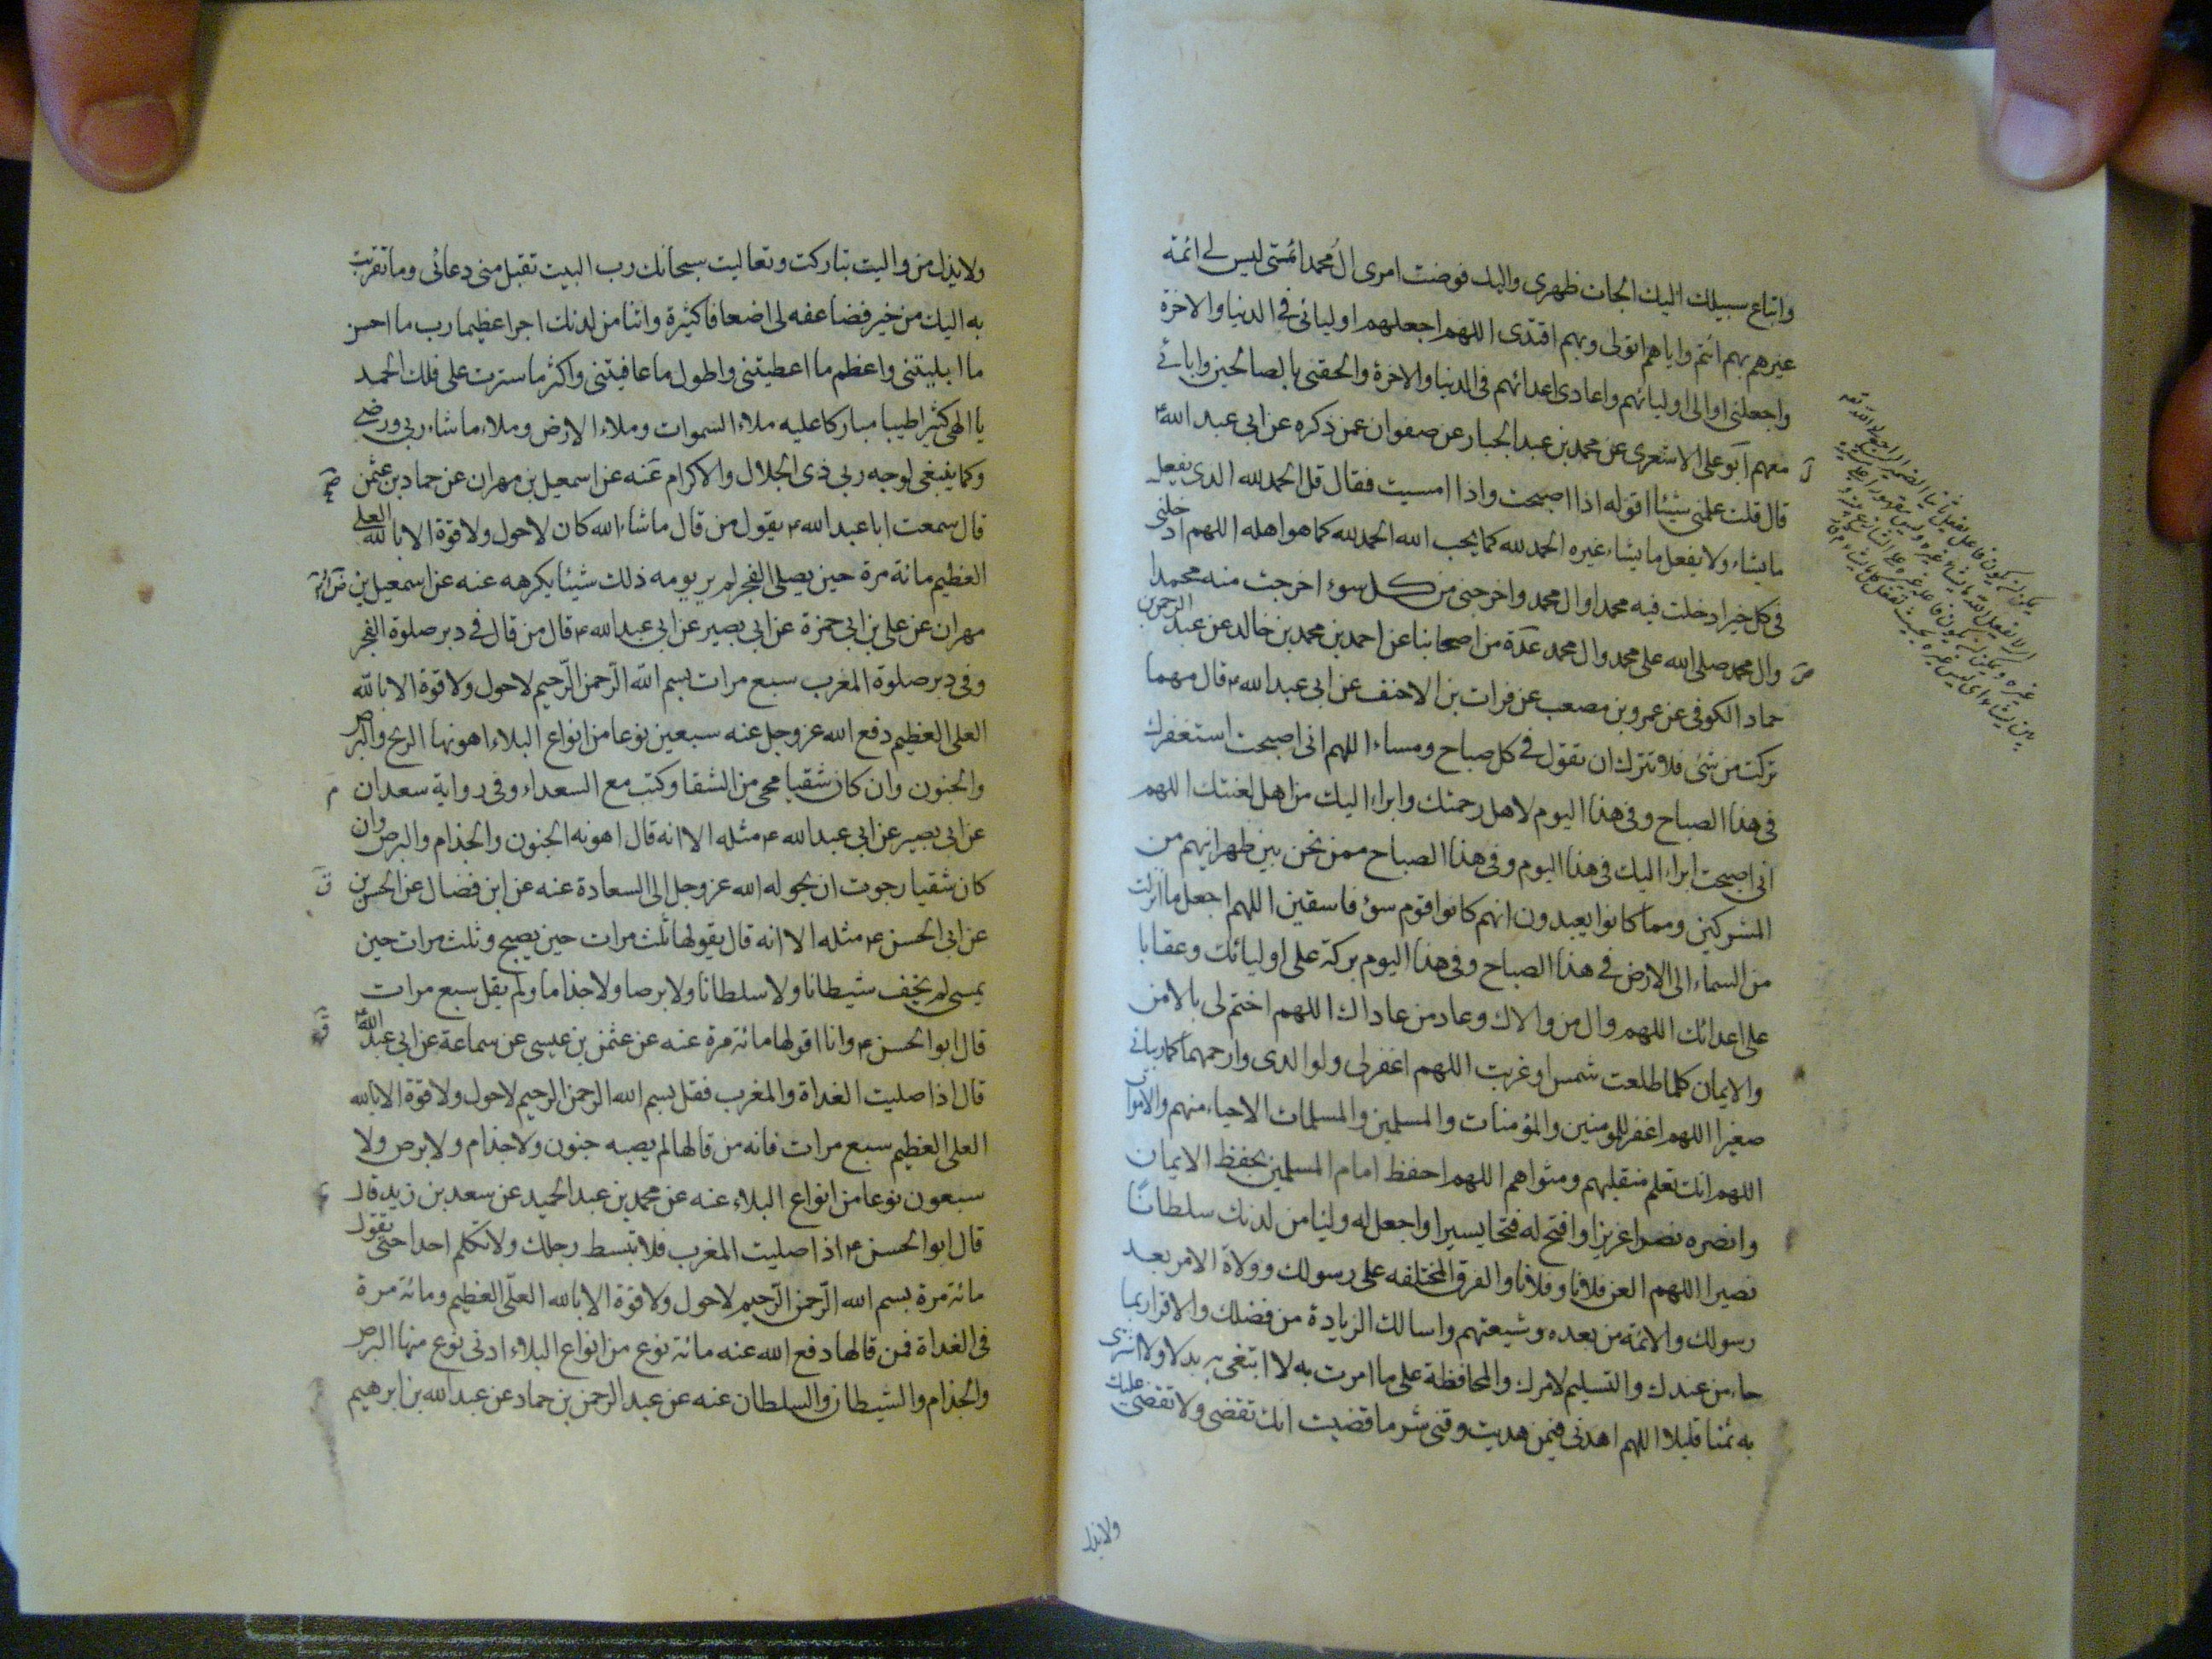 واتباع سبيلك اليك الجات ظهري واليك فوضت امرى ال محمد ائمتى ليس لى ائمة
غيرهم بهم ائتم واياهم اتولى وبهم اقتدى اللهم اجعلهم اوليائى فى الدنيا والاخرة
واجعلنى اوالى اوليائهم واعادى اعدائهم فى الدنيا والاخرة والحقنى بالصالحين وابائى
معهم ابو على الاشعرى عن محمد بن عبد الجبار عن صفوان عمن ذكره عن ابى عبد الله ع
قال قلت علمنى شيئا اقوله اذا اصبحت واذا امسيت فقال قل الحمد لله الذى يفعل
ما يشاء ولا يفعل ما يشاء غيره الحمد لله كما يحب الله الحمد لله كما هو اهله اللهم ادخلنى
فى كل خير ادخلت فيه محمدا وال محمد واخرجنى من كل سوء اخرجت منه محمدا
وال محمد صلى الله على محمد وال محمد عدة من اصحابنا عن احمد بن محمد بن خالد عن عبد الرحمن بن
حماد الكوفى عن عمرو بن مصعب عن فرات بن الاحنف عن ابى عبد الله ع قال مهما
تركت من شئ فلا تترك ان تقول فى كل صباح ومساء اللهم انى اصبحت استغفرك
فى هذا الصباح وفى هذا اليوم لاهل رحمتك وابراء اليك من اهل لعنتك اللهم
انى اصبحت ابراء اليك فى هذا اليوم وفى هذا الصباح ممن نحن بين ظهرانيهم من
المشركين ومما كانوا يعبدون انهم كانوا قوم سوء فاسقين اللهم اجعل ما انزلت
من السماء الى الارض فى هذا الصباح وفى هذا اليوم بركة على اوليائك وعقابا
على اعدائك اللهم وال من والاك وعاد من عاداك اللهم اختم لى بالامن
والايمان كلما طلعت شمس او غربت اللهم اغفر لى ولوالدى وارحمهما كما ربيانى
صغيرا اللهم اغفر للمومنين والمؤمنات والمسلمين والمسلمات الاحياء منهم والاموات
اللهم انك تعلم منقلبهم ومثواهم اللهم احفظ امام المسلمين بحفظ الايمان
وانصره نصرا عزيزا وافتح له فتحا يسيرا واجعل له ولنا من لدنك سلطانا
نصيرا اللهم العن فلانا وفلانا والفرق المختلفه على رسولك وولاة الامر بعد
رسولك والائمة من بعده وشيعتهم واسالك الزيادة من فضلك والاقرار بما
جاء من عندك والتسليم لامرك والمحافظة على ما امرت به لا ابتغى به بدلا ولا اشترى
به ثمنا قليلا اللهم اهدنى فيمن هديت وقنى شر ما قضيت انك تقضى ولا تقضى عليك
ولايذل
ولا يذل من واليت تباركت وتعاليت سبحانك رب البيت تقبل منى دعائى وما تقربت
به اليك من خير فضاعفه لى اضعافا كثيرة واتنا من لدنك اجرا عظيما رب ما احسن
ما ابليتنى واعظم ما اعطيتنى واطول ما عافيتنى واكثر ما سترت على فلك الحمد
يا الهى كثيرا طيبا مباركا عليه ملاء السموات وملاء الارض وملاء ما شاء ربى ورضى
وكما ينبغى لوجه ربى ذى الجلال والاكرام عنه عن اسمعيل بن مهران عن حماد بن عثمن
قال سمعت ابا عبد الله ع يقول من قال ما شاء الله كان لا حول ولا قوة الا بالله العلى
العظيم مائة مرة حين يصلى الفجر لم ير يومه ذلك شيئا يكرهه عنه عن اسمعيل بن
مهران عن على بن ابى حمزة عن ابى بصير عن ابى عبد الله ع قال من قال فى دبر صلوة الفجر
وفى دبر صلوة المغرب سبع مرات بسم الله الرحمن الرحيم لا حول ولا قوة الا بالله
العلى العظيم دفع الله عز وجل عنه سبعين نوعا من انواع البلاء اهونها الريح والبرص
والجنون وان كان شقيا محى من الشقا وكتب مع السعداء وفى رواية سعدان
عن ابى بصير عن ابى عبد الله ع مثله الا انه قال اهونه الجنون والجذام والبرص وان
كان شقيا رجوت ان يحوله الله عز وجل الى السعادة عنه عن ابن فضال عن الحسن بن
عن ابى الحسن ع مثله الا انه قال يقولها ثلث مرات حين يصبح وثلث مرات حين
يمسى لم يخف شيطانا ولا سلطانا ولا برصا ولا جذاما ولم يقل سبع مرات
قال ابو الحسن ع وانا اقولها مائة مرة عنه عن عثمن بن عيسى عن سماعة عن ابى عبد الله ع
قال اذا صليت الغداة والمغرب فقل بسم الله الرحمن الرحيم لا حول ولا قوة الا بالله
العلى العظيم سبع مرات فانه من قالها لم يصبه جنون ولا جذام ولا برص ولا
سبعون نوعا من انواع البلاء عنه عن محمد بن عبد الحميد عن سعد بن زيد قال
قال ابو الحسن ع اذا صليت المغرب فلا تبسط رجلك ولا تكلم احدا حتى تقول
مائة مرة بسم الله الرحمن الرحيم لا حول ولا قوة الا بالله العلى العظيم ومائة مرة
فى الغداة فمن قالها دفع الله عنه مائة نوع من انواع البلاء ادنى نوع منها البرص
والجذام والشيطان والسلطان عنه عن عبد الرحمن بن حماد عن عبد الله بن ابرهيم